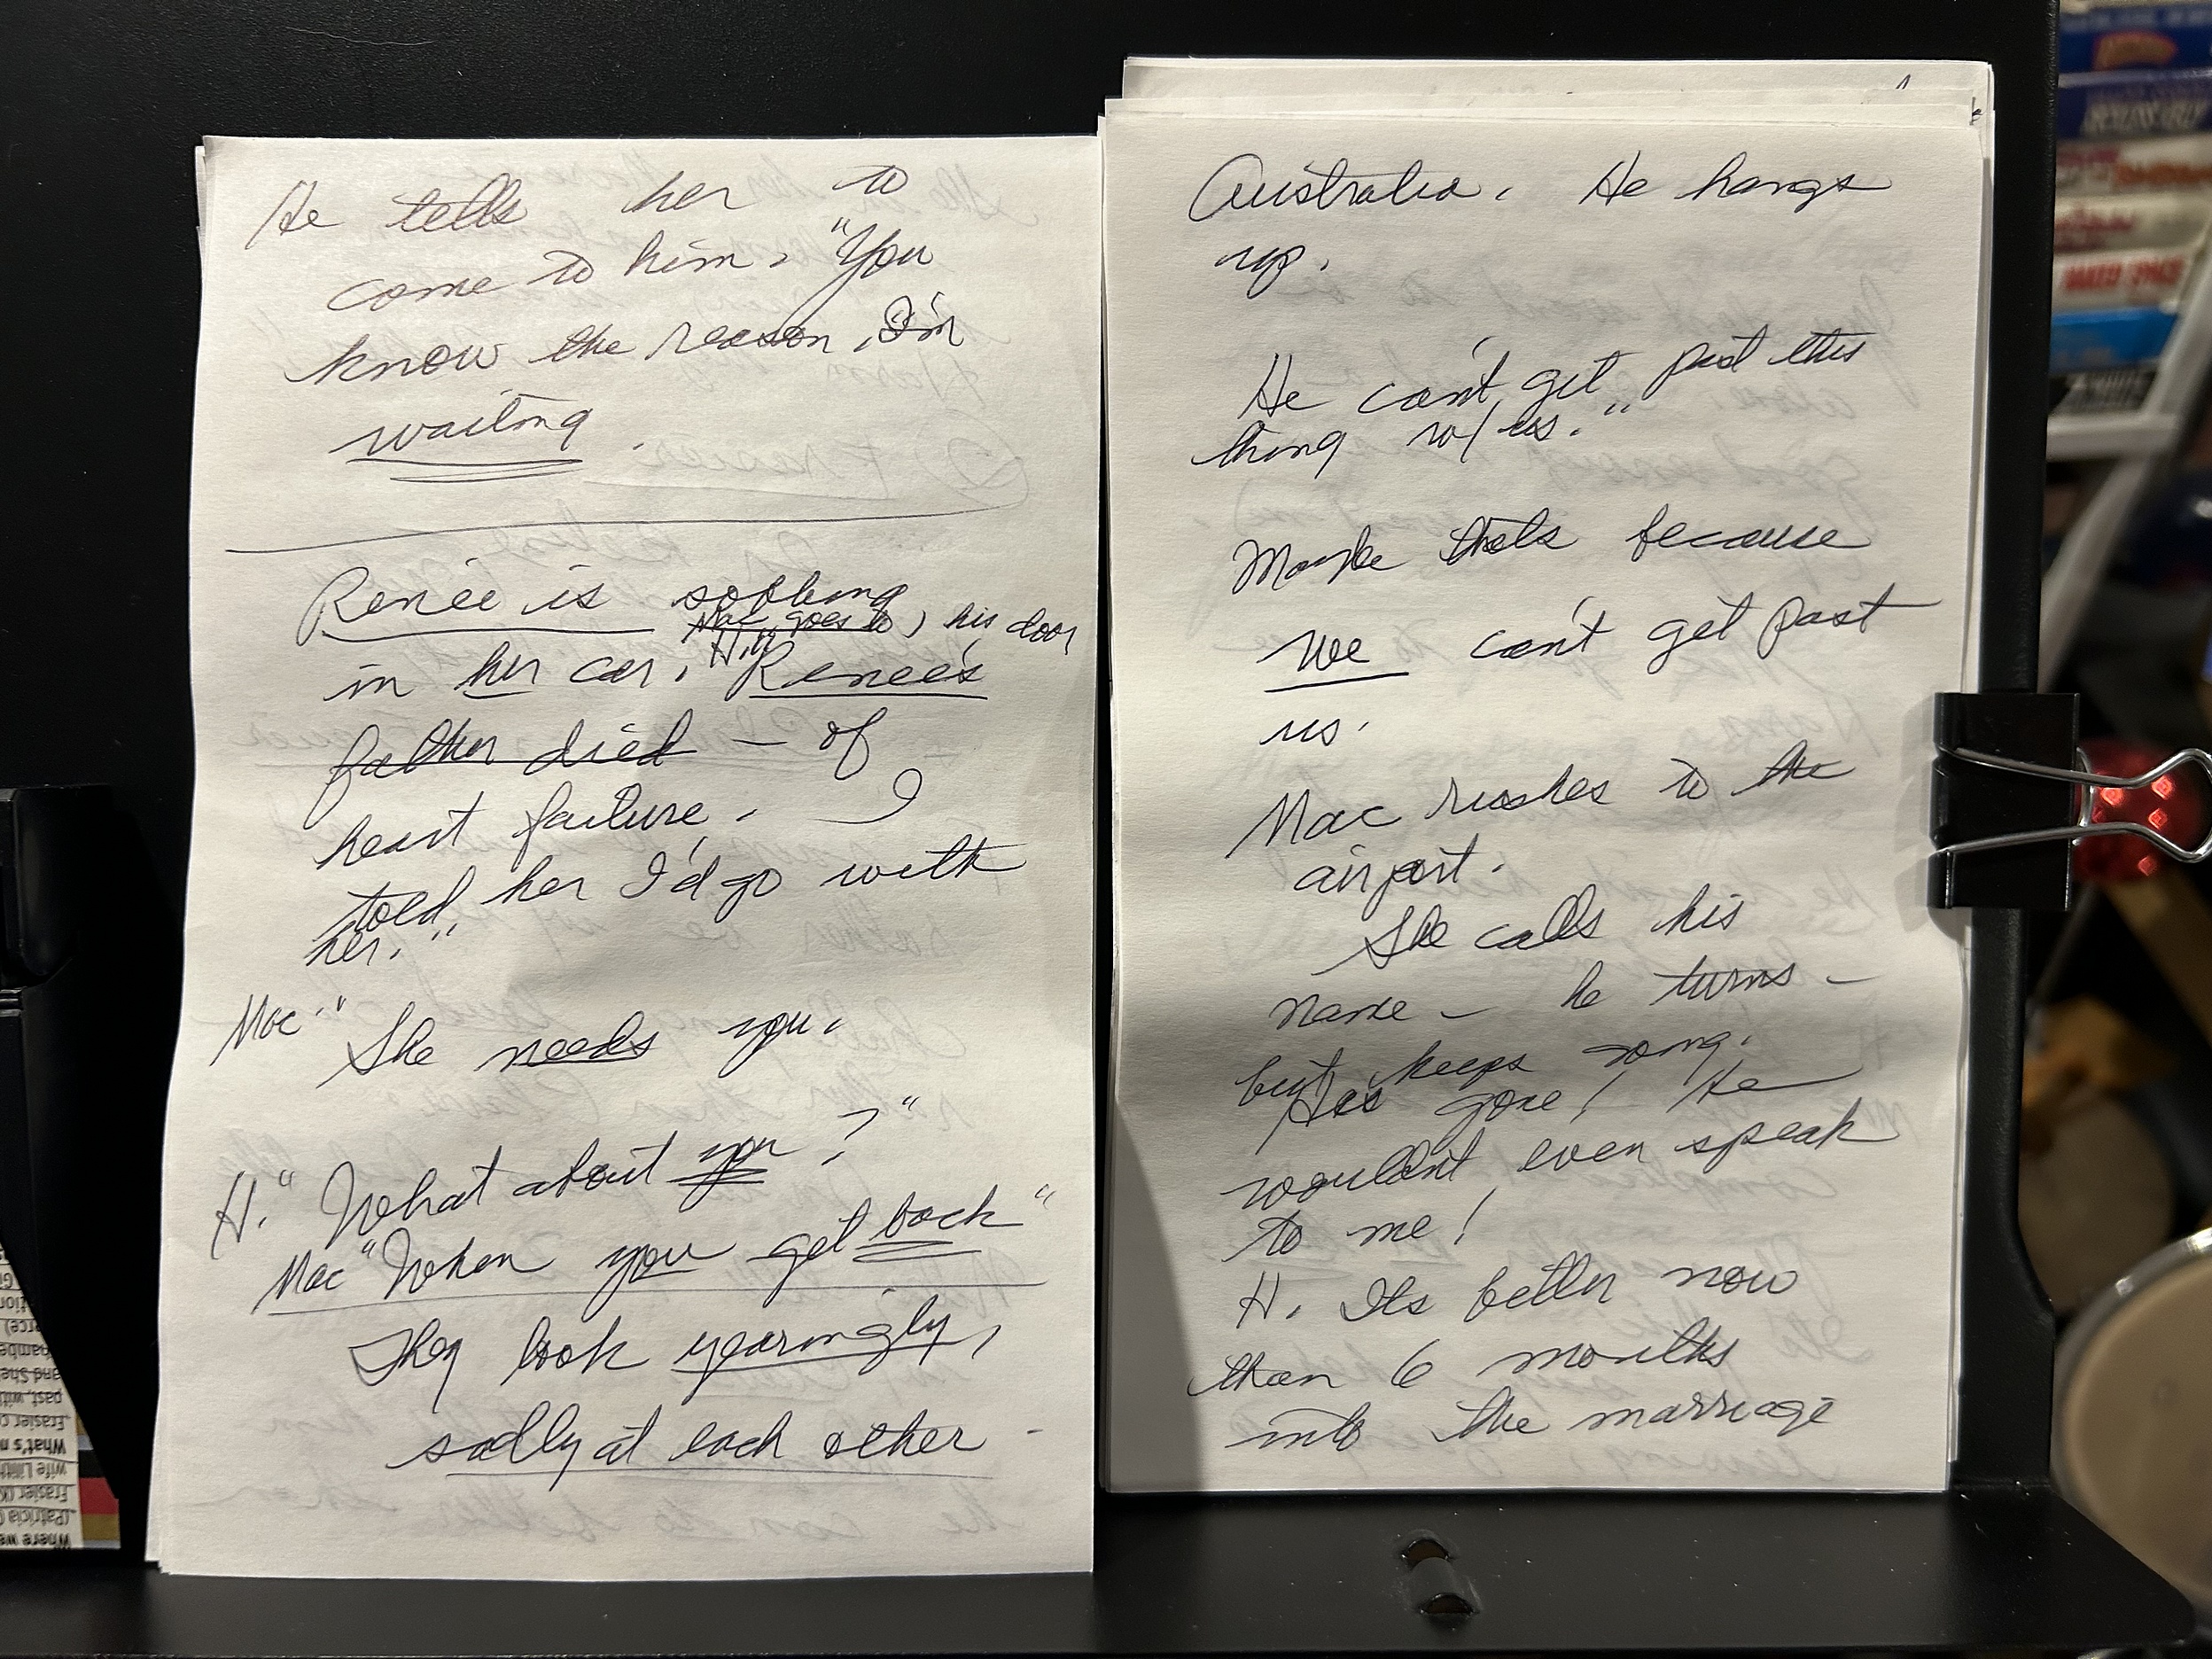 He tells her to
come to him. "You
know the reason, I'm
waiting.
Renée is sobbing
Mac goes to his door
in her car. H." Renee's
father died — of
heart failure. I
told her I'd go with
her."
Mac." She needs you.
H." What about you?"
Mac "When you get back"
They look yearingly,
sadly at each other -
Australia. He hangs
up.
He can't get past this
thing w/ us."
Maybe thats because
we can't get past
us.
Mac rushes to the
airport.
She calls his
name - he turns -
but keeps going.
He's gone! He
wouldn't even speak
to me!
H. Its better now
than 6 months
into the marriage